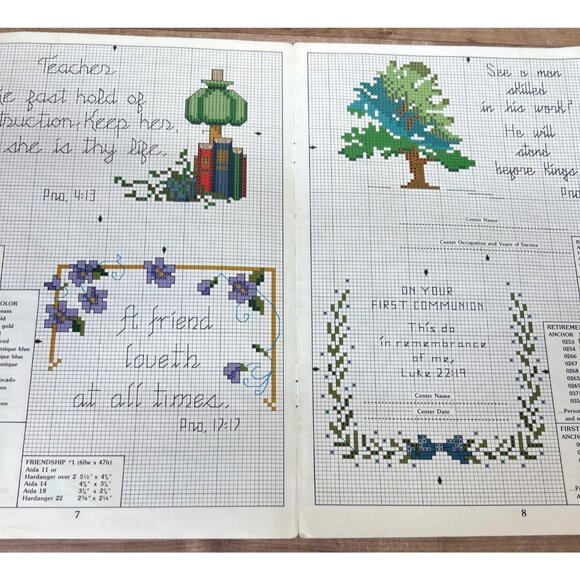 Teacher
fast hold of
Keep her,
she is thy life.
Pro, 4:13
A friend
loveth
at all times.
Pro, 17:17
OLOR
eam
ld
gold
red
ntique blue
ntique blue
ocado
een
FRIENDSHIP #1 (60w x 47h)
Aida 11 or
Hardanger over 2 5½" x 4¼"
Aida 14 4¼" x 3⅜"
Aida 18 3⅜" x 2⅝"
Hardanger 22 2¾" x 2¼"
7
See a man
skilled
in his work?
He will
stand
before Kings,
Pro
Center Name
Center Occupation and Years of Service
ON YOUR
FIRST COMMUNION
This do
in remembrance
of me,
Luke 22:19
Center Name
Center Date
RETIREME
ANCHOR
0253
0254
0266
0268
0263
0267
0269
037
035
...Person
and n
FIRST
ANCHO
8